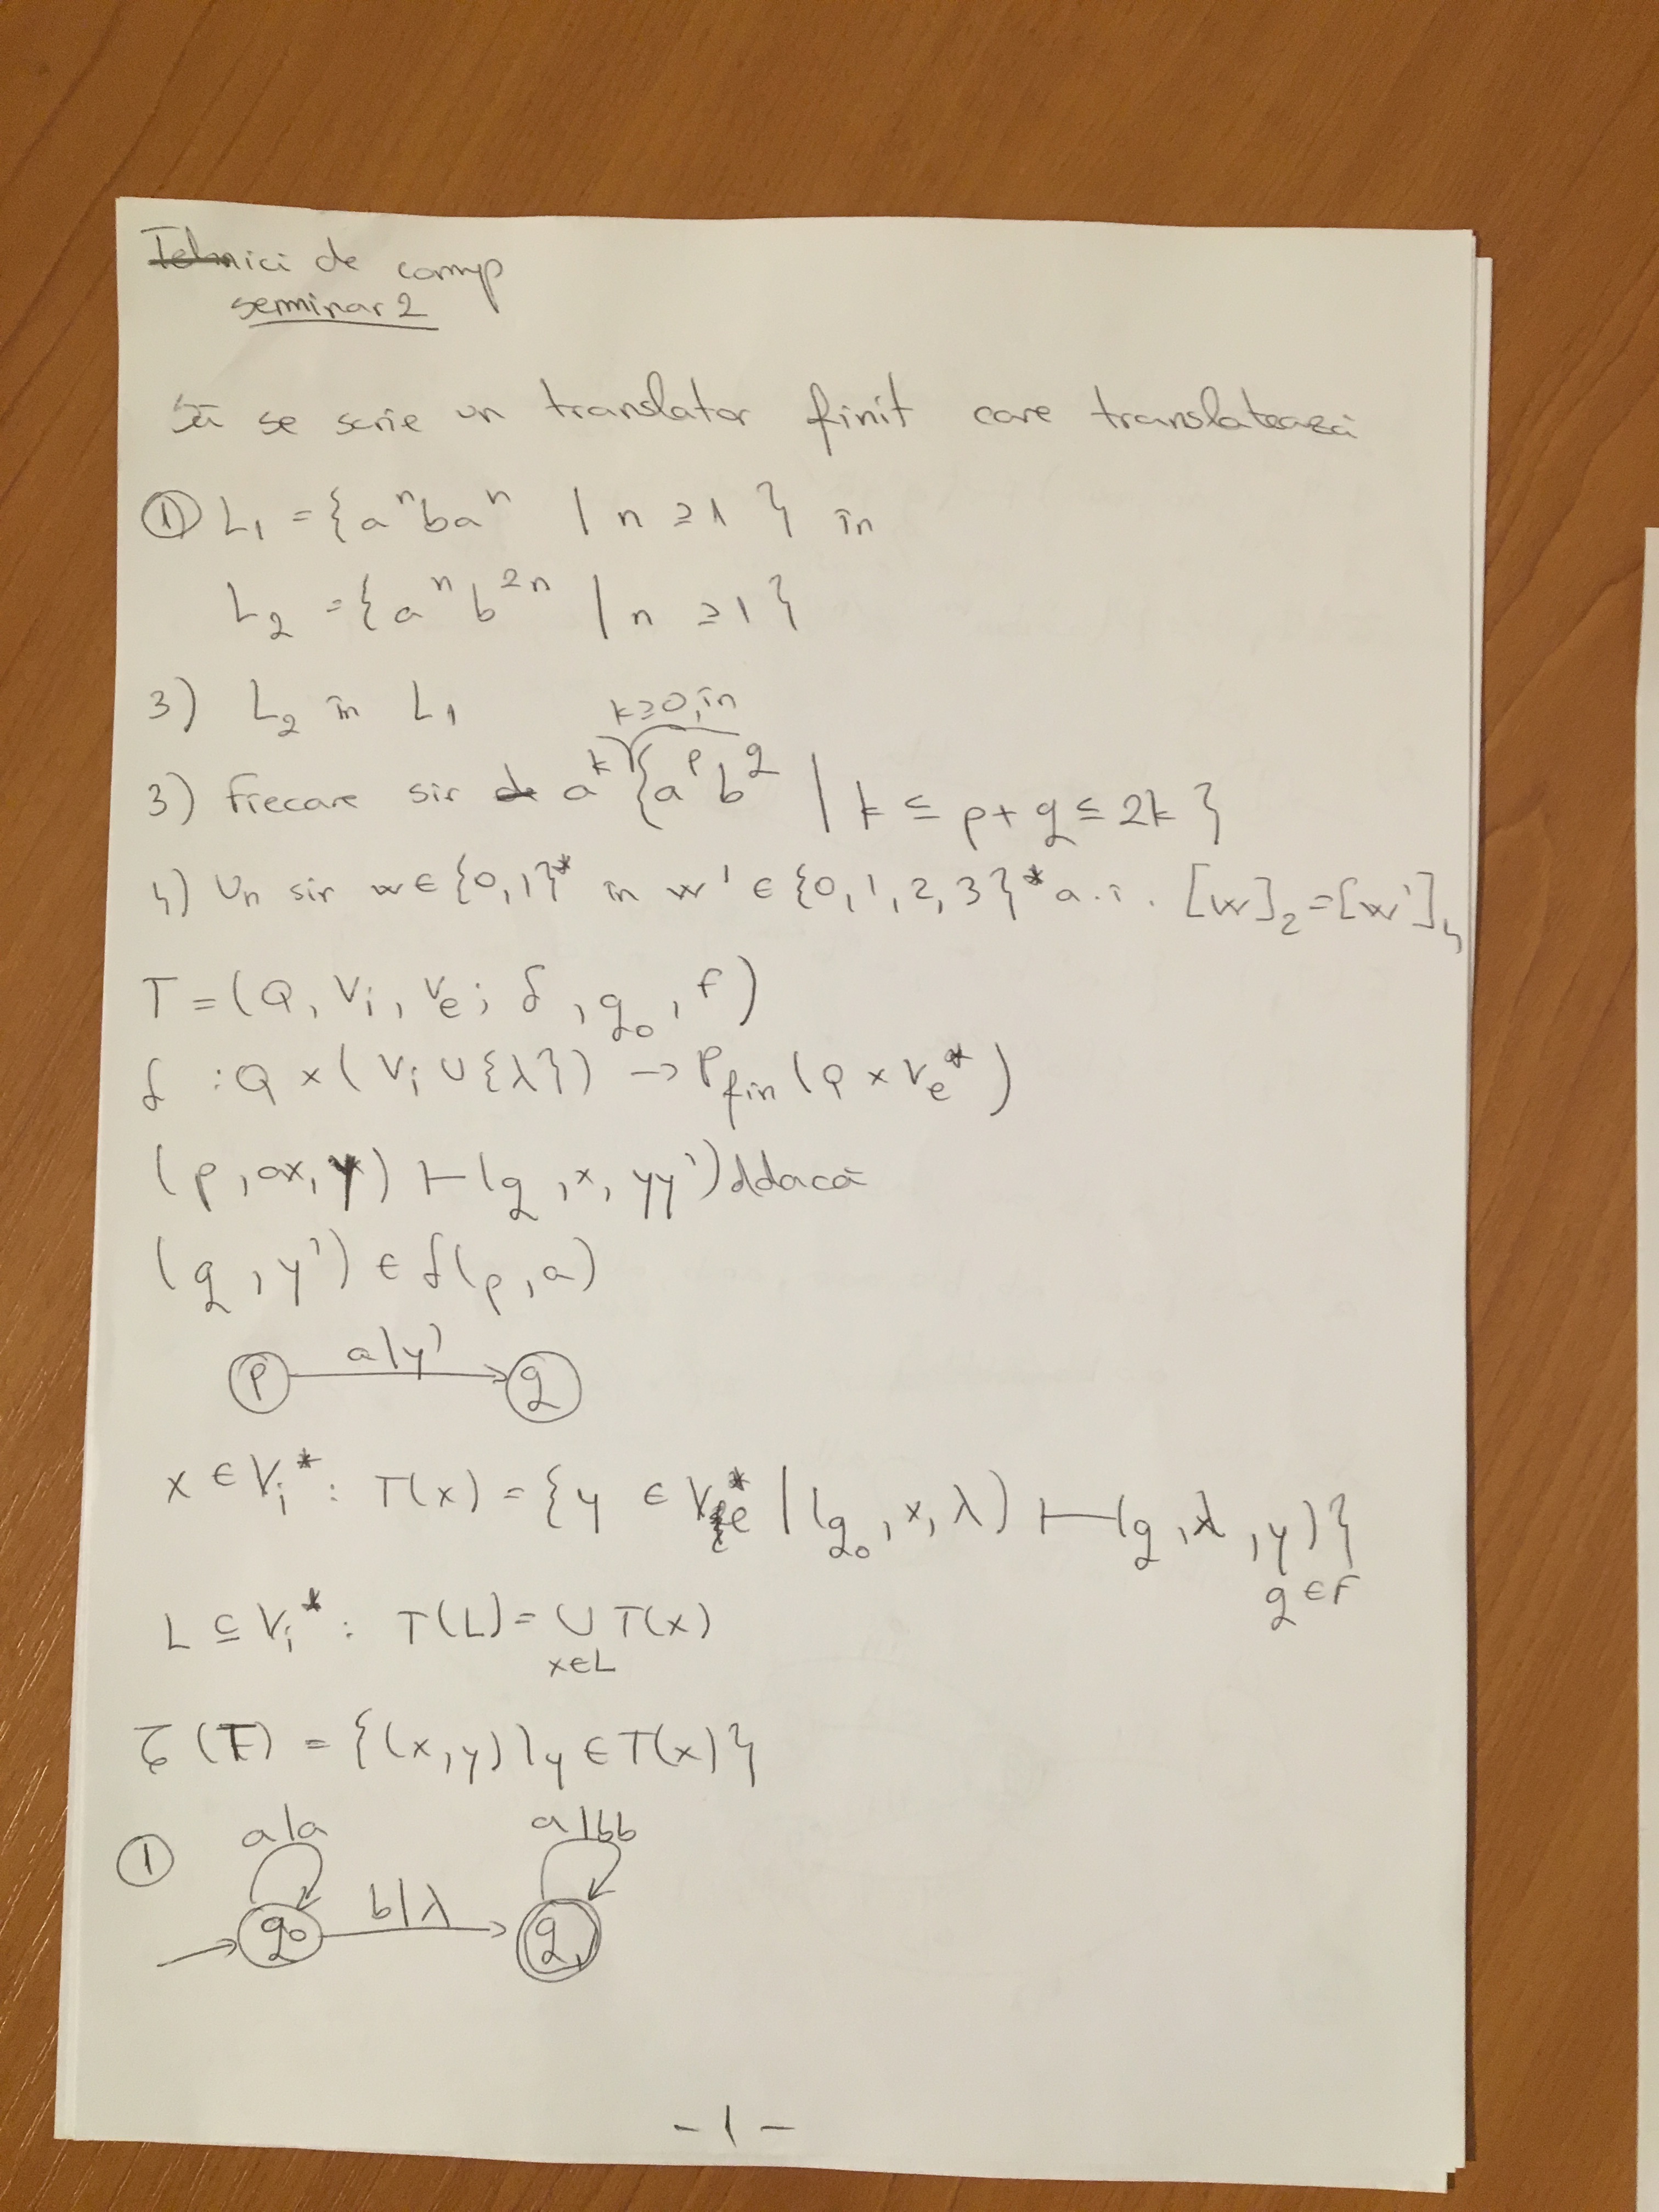 Tehnici de comp
seminar 2
Să se scrie un translator finit care translatează
① L₁ = {aⁿbaⁿ | n ≥ 1 } în
L₂ = {aⁿb²ⁿ | n ≥ 1}
3) L₂ în L₁
k≥0, în
3) fiecare sir de aᵏ {aᵖb^q | k ≤ p+q ≤ 2k }
4) Un sir w ∈ {0,1}* în w' ∈ {0,1,2,3}* a.î. [w]₂ = [w']₄
T = (Q, Vᵢ, Vₑ, δ, q₀, F)
δ : Q × (Vᵢ ∪ {λ}) → P_fin (Q × Vₑ*)
(p, ax, y) ⊢ (q, x, yy') ddacă
(q, y') ∈ δ(p, a)
p a|y' q
x ∈ Vᵢ* : T(x) = {y ∈ Vₑ* | (q₀, x, λ) ⊢ (q, λ, y)}
q ∈ F
L ⊆ Vᵢ* : T(L) = ∪ T(x)
x∈L
τ(T) = {(x,y) | y ∈ T(x)}
① a|a a|bb
b|λ
q₀ q₁
- 1 -